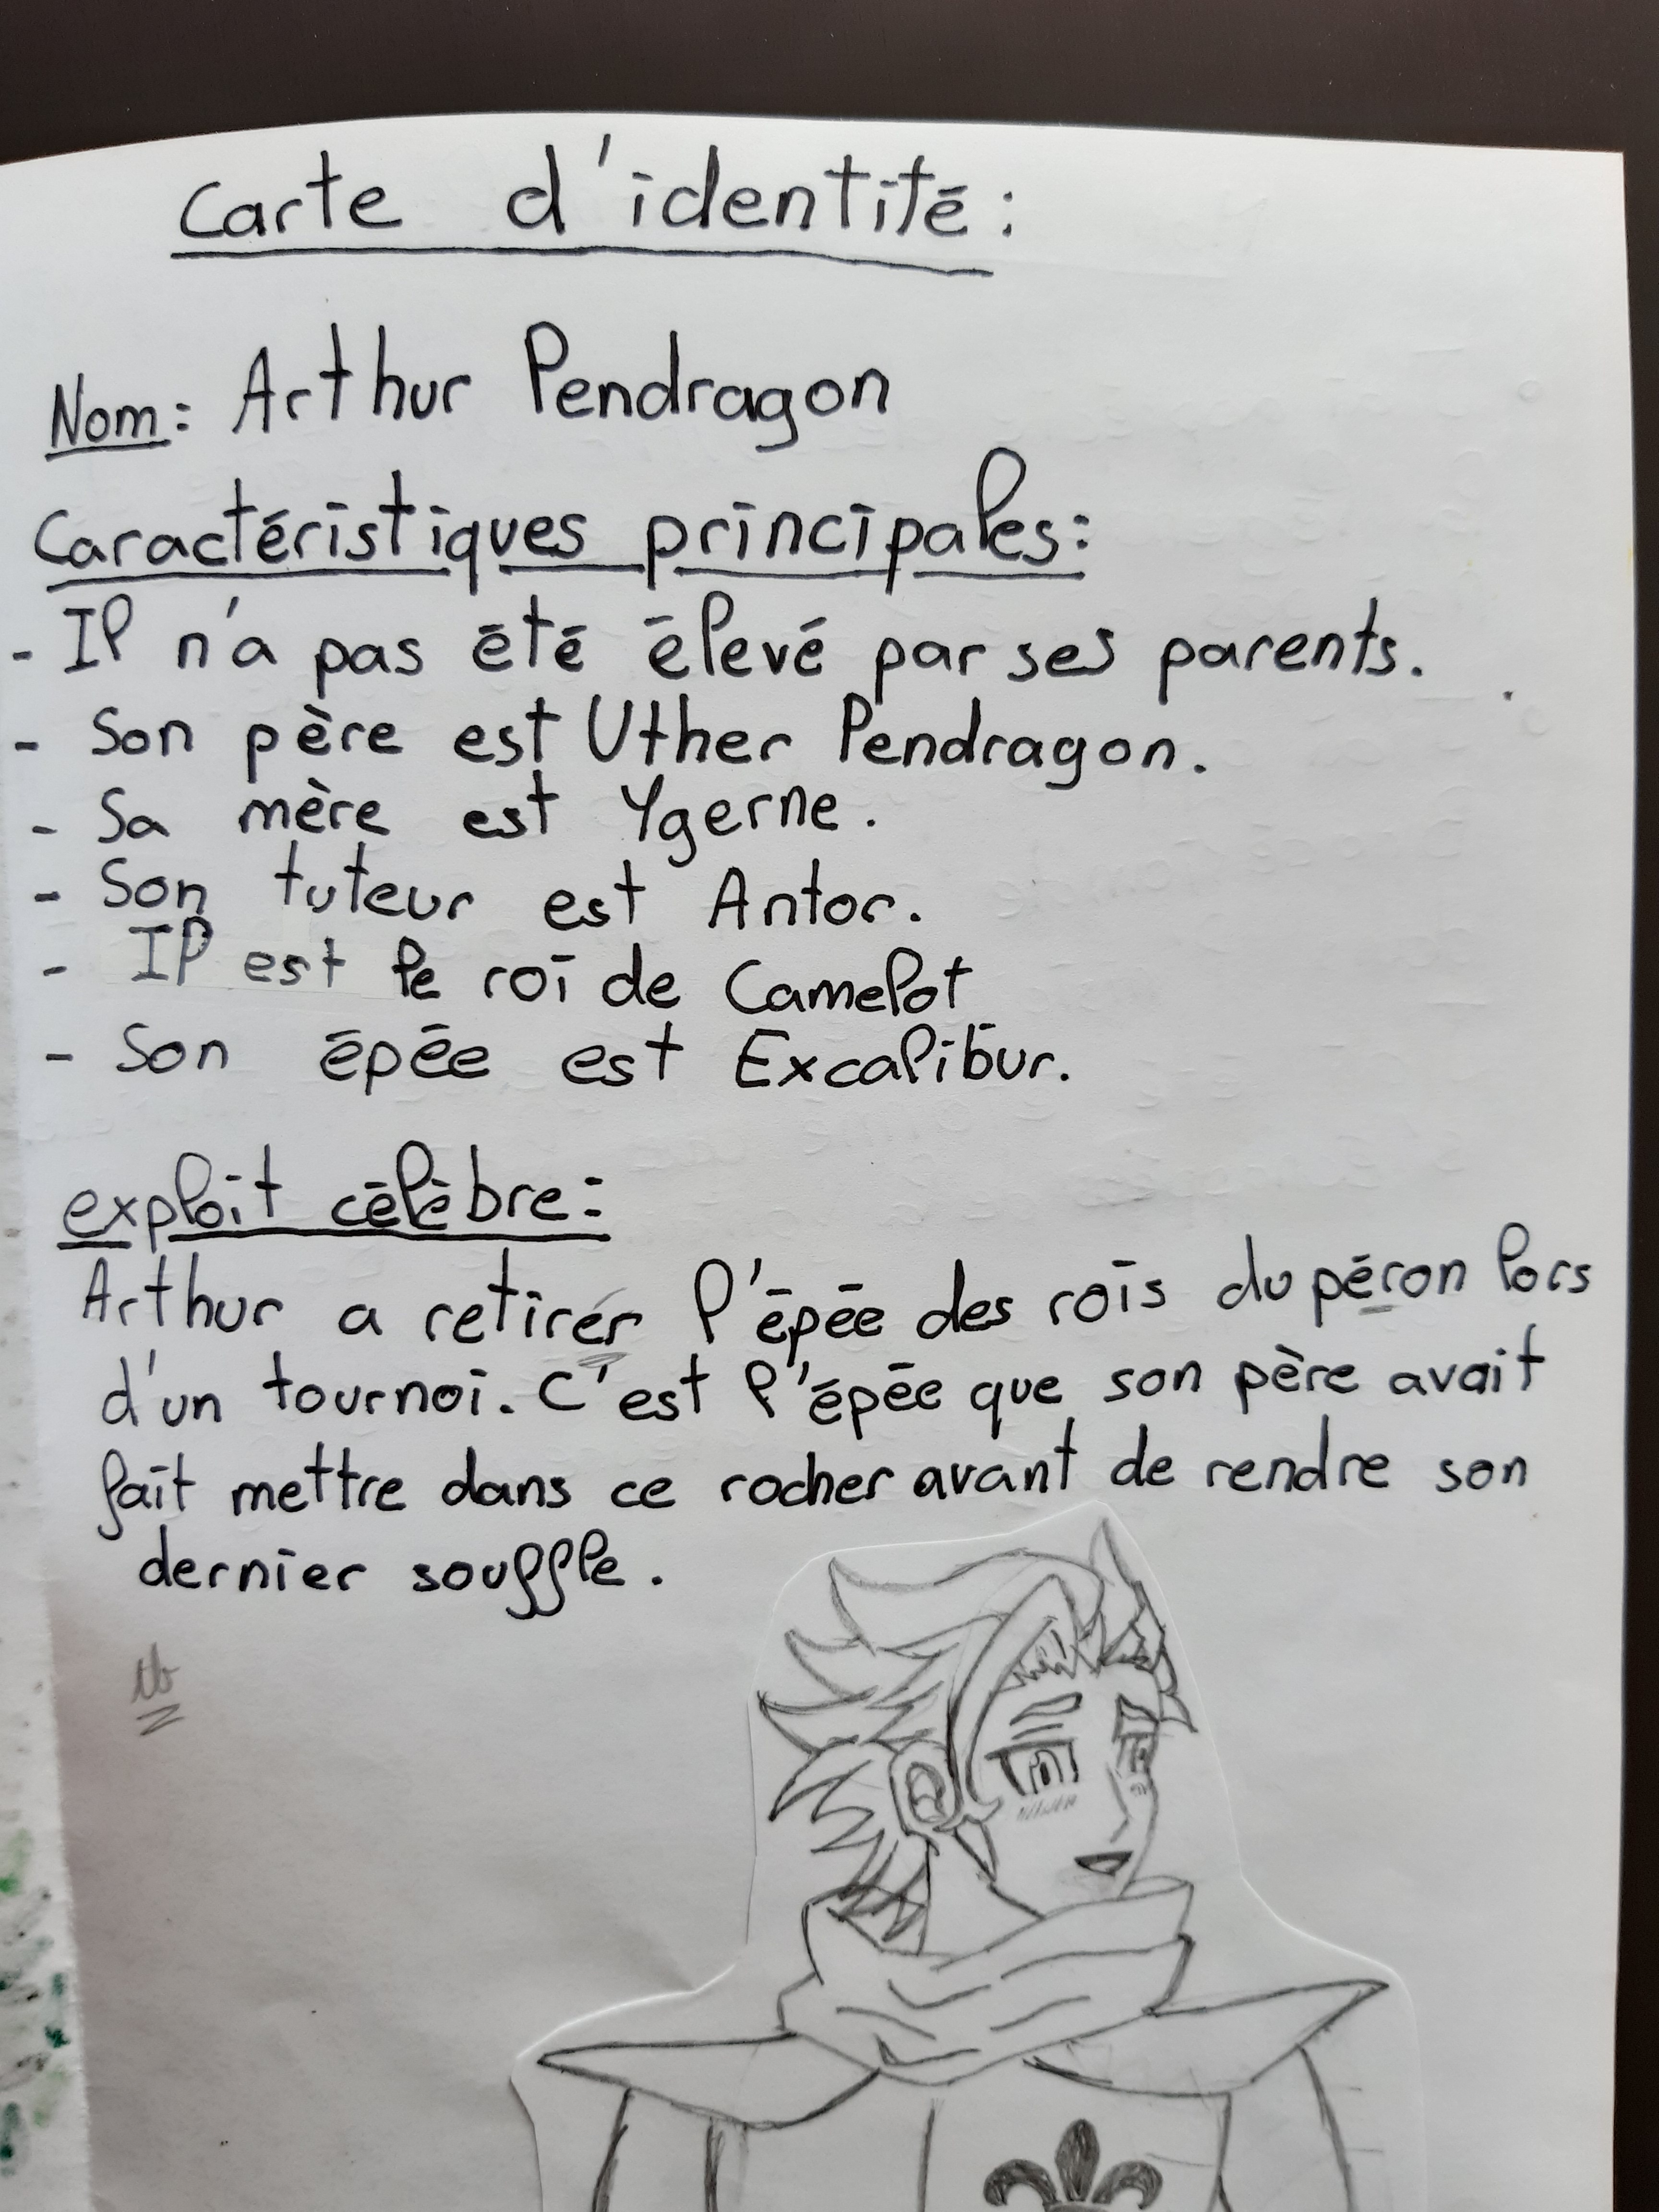 Carte d'identité :
Nom : Arthur Pendragon
Caractéristiques principales :
- Il n'a pas été élevé par ses parents.
- Son père est Uther Pendragon.
- Sa mère est Ygerne.
- Son tuteur est Antor.
- Il est le roi de Camelot
- Son épée est Excalibur.
exploit célèbre :
Arthur a retirér l'épée des rois du péron lors
d'un tournoi. C'est l'épée que son père avait
fait mettre dans ce rocher avant de rendre son
dernier souffle.
tb